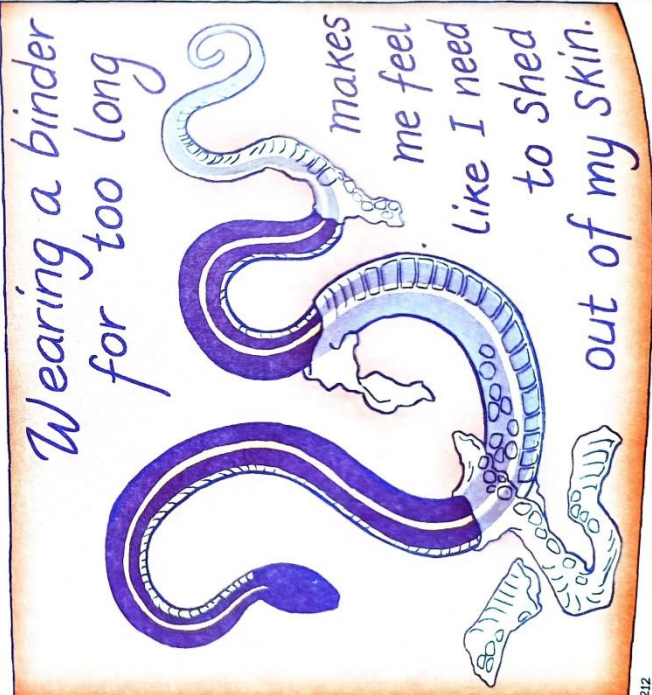 Wearing a binder
for too long
makes
me feel
like I need
to shed
out of my skin.
212